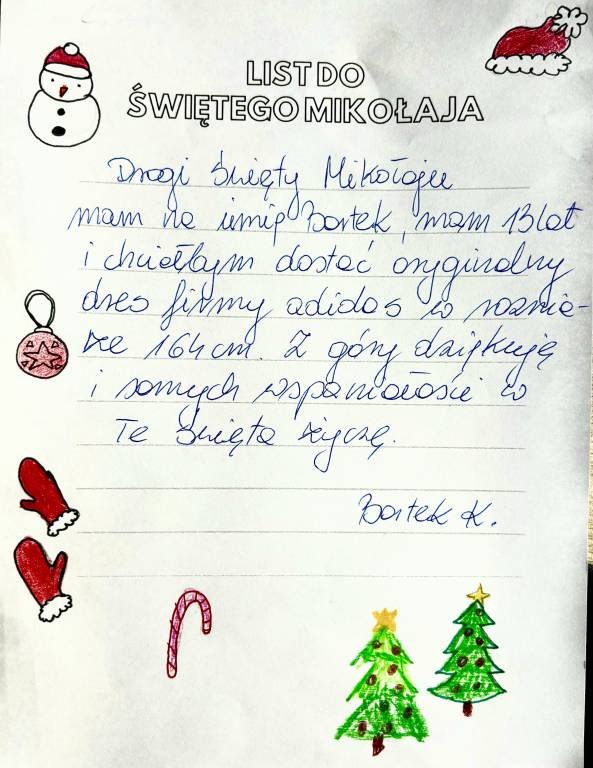 LIST DO
ŚWIĘTEGO MIKOŁAJA
Drogi Święty Mikołaju
mam na imię Bartek, mam 13 lat
i chciałbym dostać oryginalny
dres firmy adidas w rozmia-
rze 164 cm. Z góry dziękuję
i samych wspaniałości w
Te Święta życzę.
Bartek K.